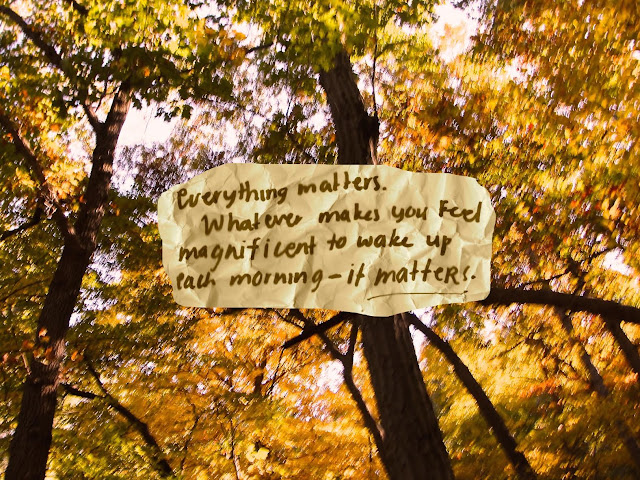 everything matters.
Whatever makes you feel
magnificent to wake up
each morning - it matters.